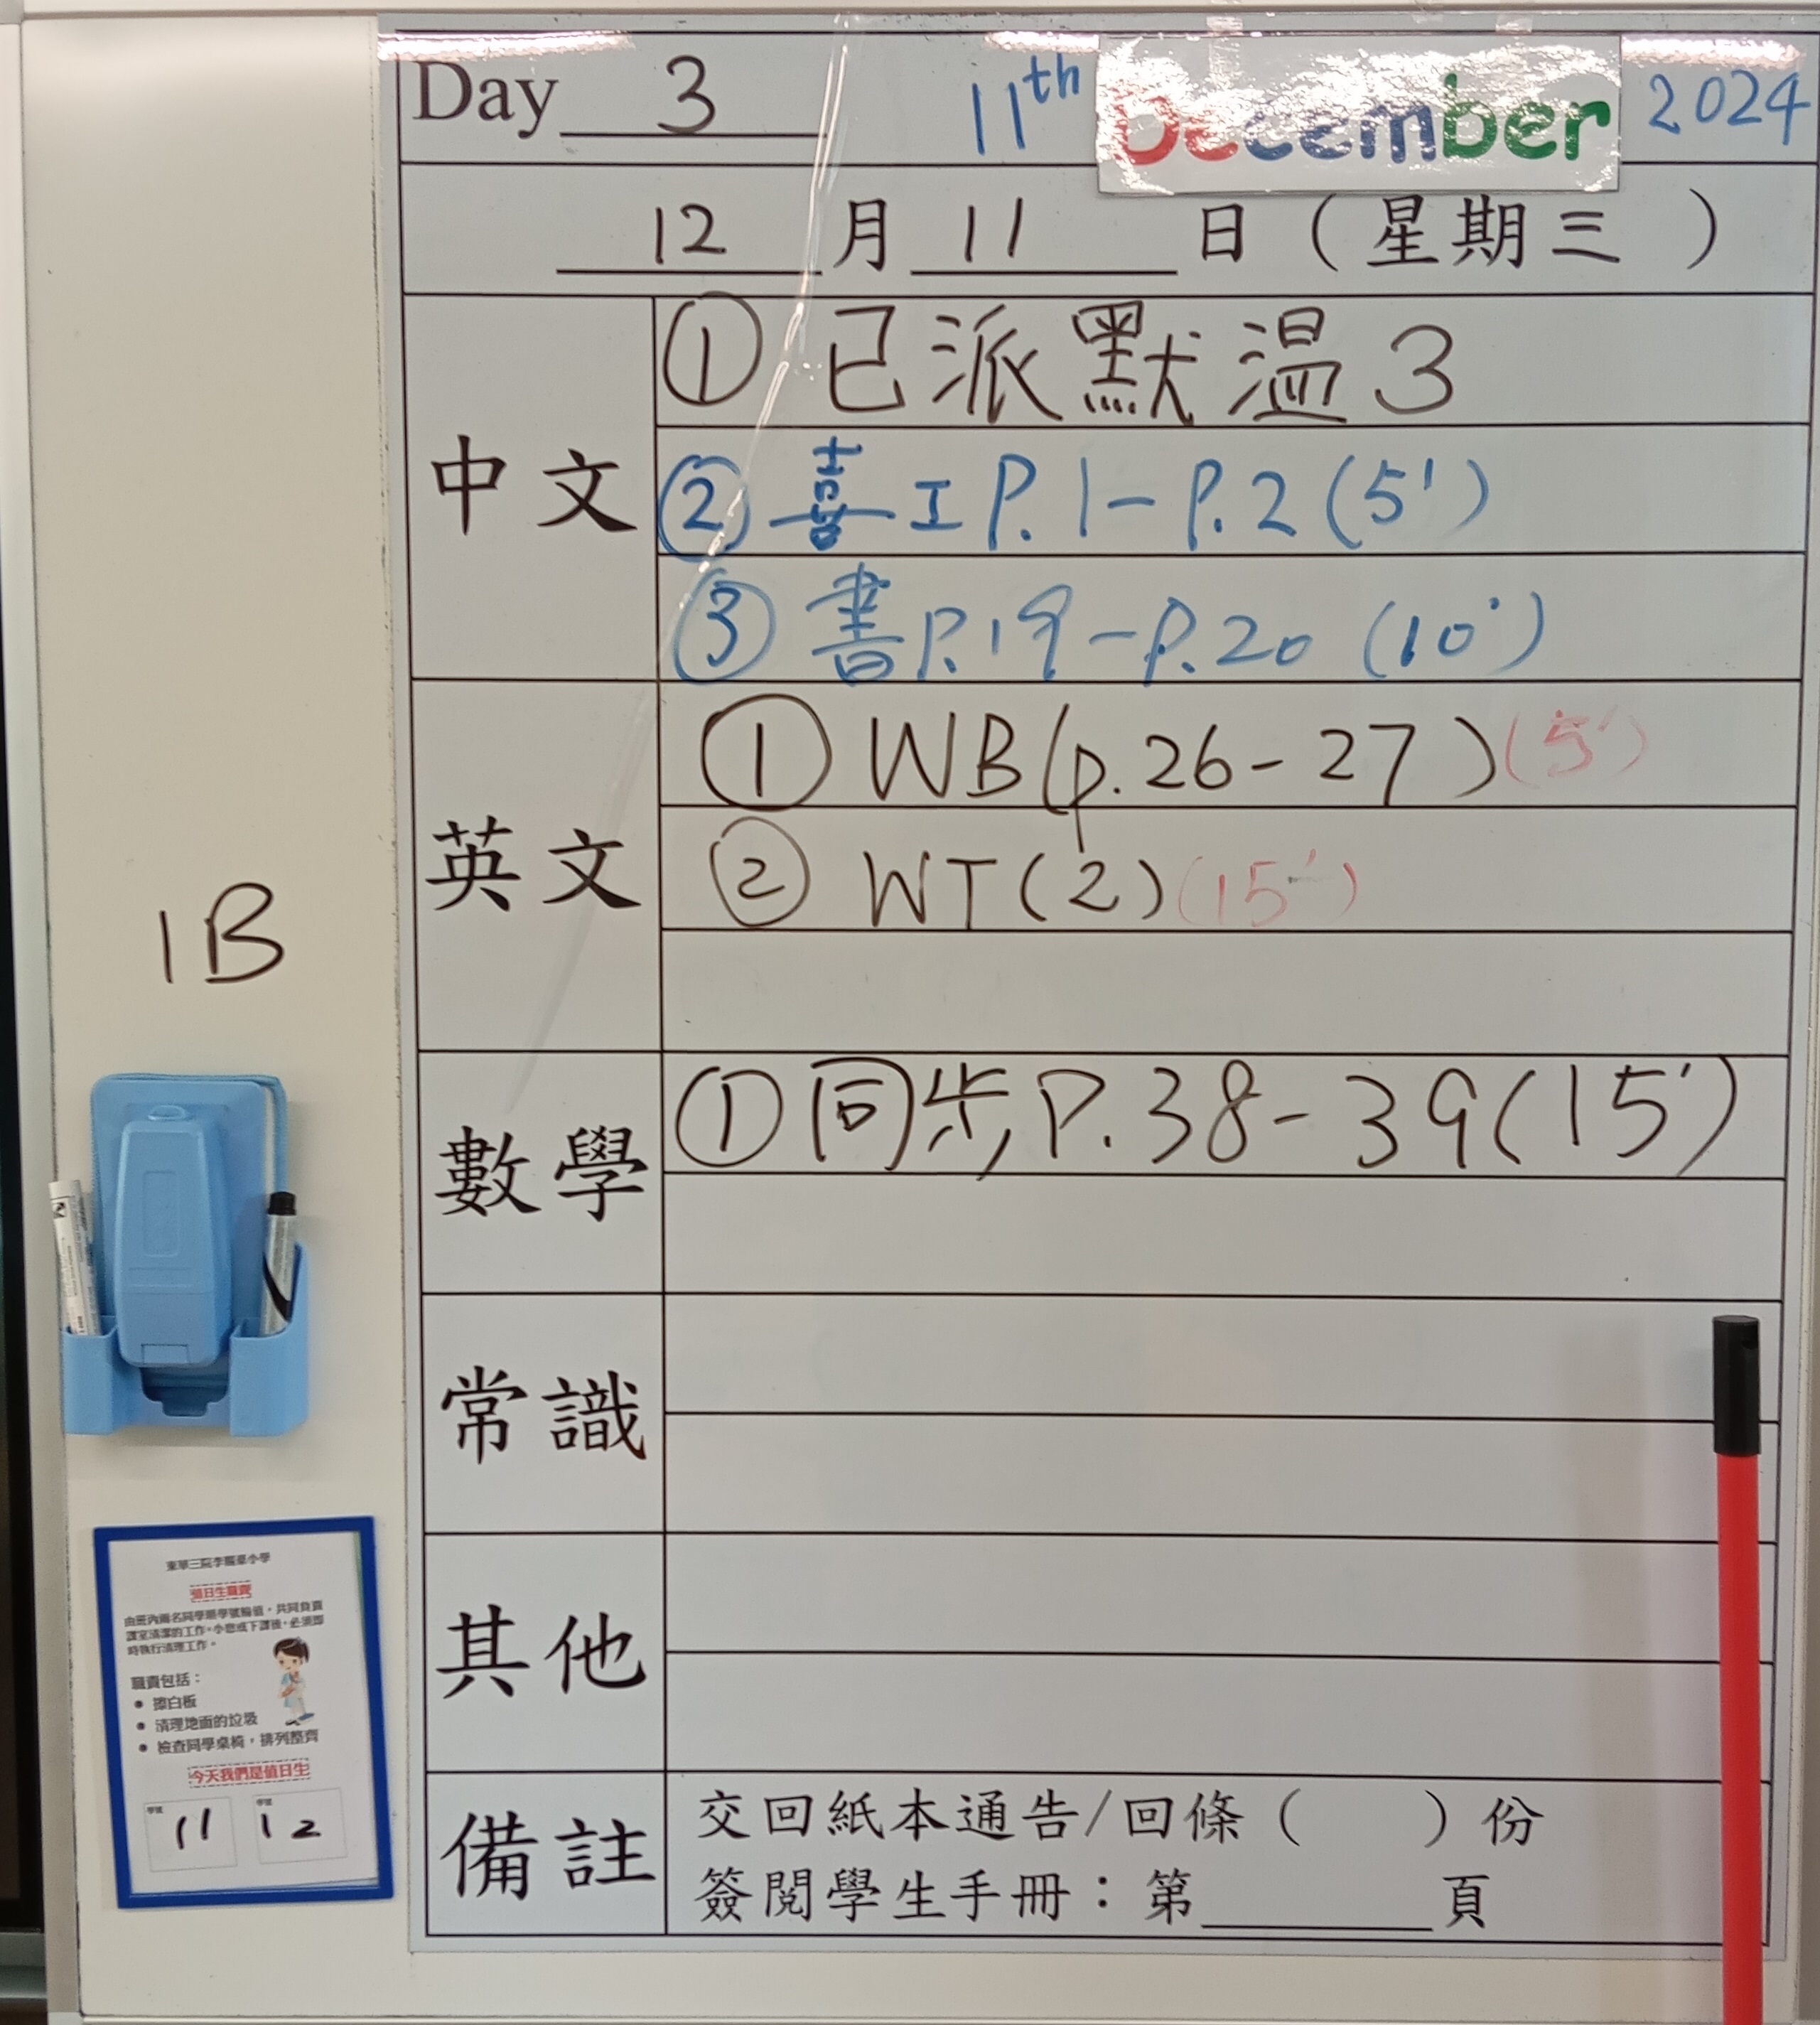 Day 3 11th December 2024
12 月 11 日 ( 星期三 )
中文
① 已派默温3
② 喜工P.1-P.2(5')
③ 書P.19-P.20 (10')
英文
① WB(p.26-27)(5')
② WT(2)(15')
數學
① 同步P.38-39(15')
常識
其他
備註
交回紙本通告/回條 ( ) 份
簽閱學生手冊：第____頁
1B
值日生職責
由班內兩名同學順學號輪值，共同負責
課室清潔的工作。小息或下課後，必須即
時執行清理工作。
職責包括：
● 擦白板
● 清理地面的垃圾
● 檢查同學桌椅，排列整齊
今天我們是值日生
學號 11 學號 12